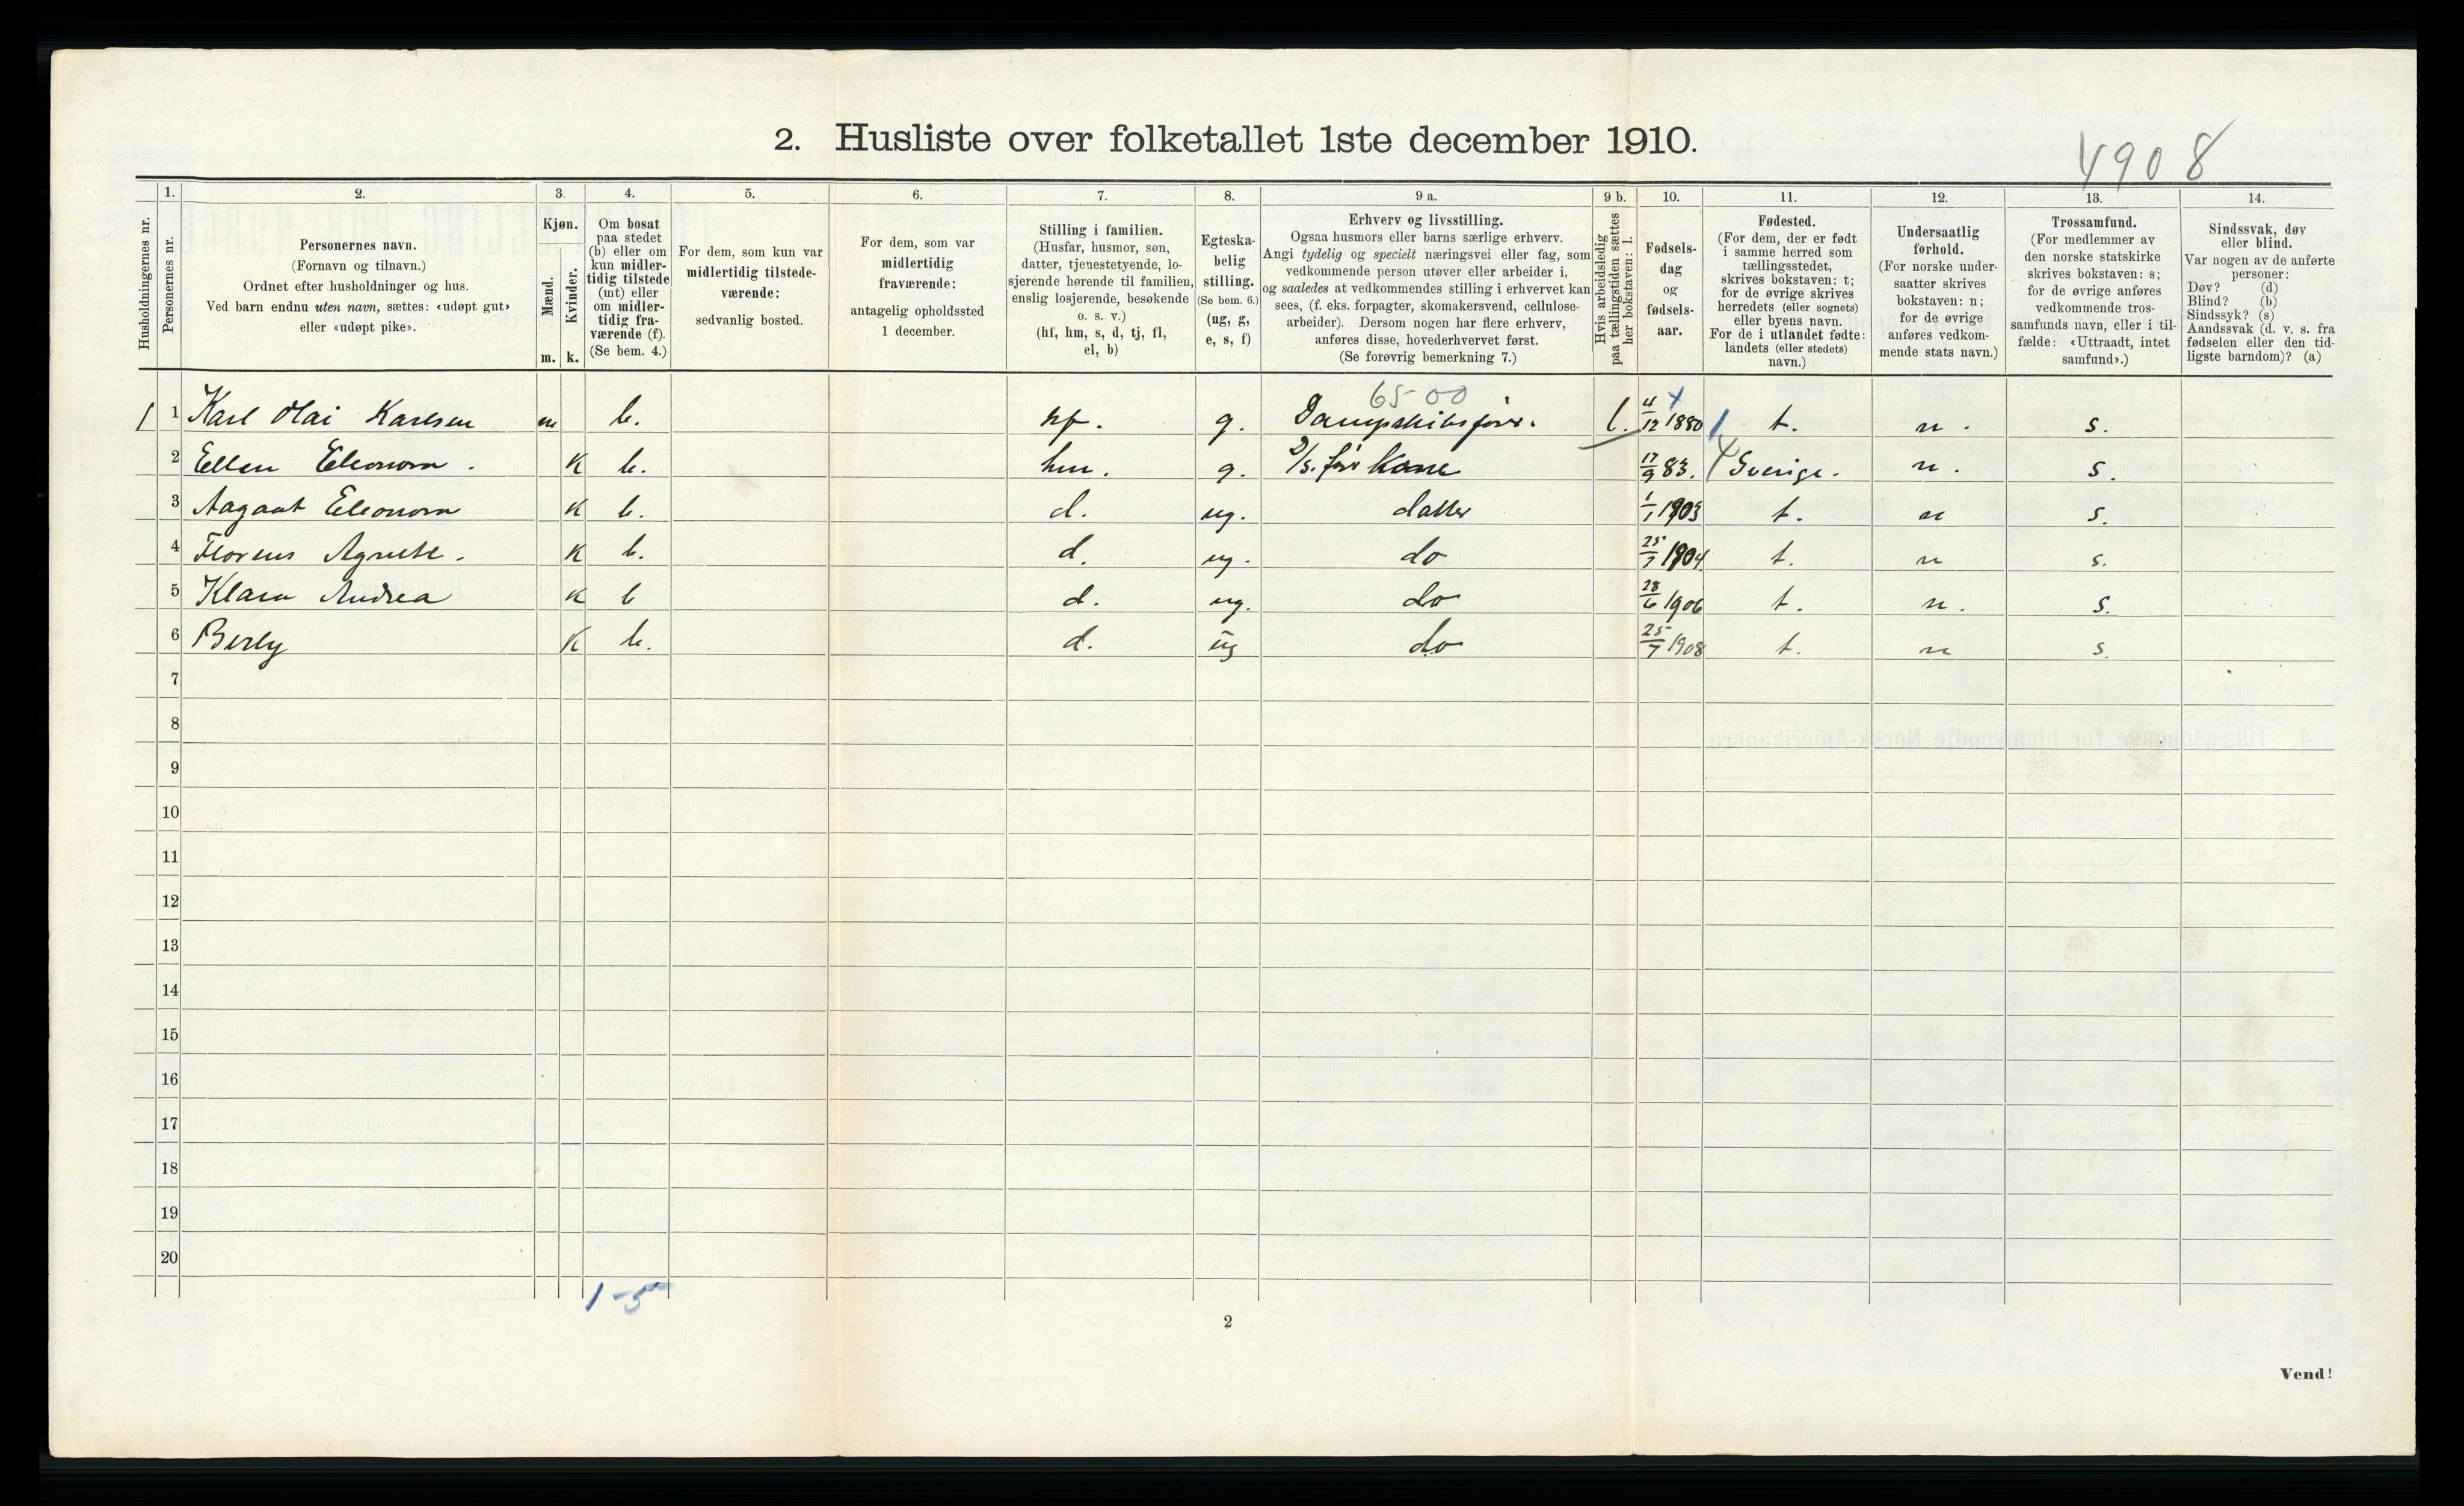 2. Husliste over folketallet 1ste december 1910.
4908
Husholdningernes nr.
1.
Personernes nr.
2.
Personernes navn.
(Fornavn og tilnavn.)
Ordnet efter husholdninger og hus.
Ved barn endnu uten navn, sættes: «udøpt gut»
eller «udøpt pike».
3.
Kjøn.
Mænd.
m.
Kvinder.
k.
4.
Om bosat
paa stedet
(b) eller om
kun midler-
tidig tilstede
(mt) eller
om midler-
tidig fra-
værende (f).
(Se bem. 4.)
5.
For dem, som kun var
midlertidig tilstede-
værende:
sedvanlig bosted.
6.
For dem, som var
midlertidig
fraværende:
antagelig opholdssted
1 december.
7.
Stilling i familien.
(Husfar, husmor, søn,
datter, tjenestetyende, lo-
sjerende hørende til familien,
enslig losjerende, besøkende
o. s. v.)
(hf, hm, s, d, tj, fl,
el, b)
8.
Egteska-
belig
stilling.
(Se bem. 6.)
(ug, g,
e, s, f)
9 a.
Erhverv og livsstilling.
Ogsaa husmors eller barns særlige erhverv.
Angi tydelig og specielt næringsvei eller fag, som
vedkommende person utøver eller arbeider i,
og saaledes at vedkommendes stilling i erhvervet kan
sees, (f. eks. forpagter, skomakersvend, cellulose-
arbeider). Dersom nogen har flere erhverv,
anføres disse, hovederhvervet først.
(Se forøvrig bemerkning 7.)
9 b.
Hvis arbeidsledig
paa tællingstiden sættes
her bokstaven: l.
10.
Fødsels-
dag
og
fødsels-
aar.
11.
Fødested.
(For dem, der er født
i samme herred som
tællingsstedet,
skrives bokstaven: t;
for de øvrige skrives
herredets (eller sognets)
eller byens navn.
For de i utlandet fødte:
landets (eller stedets)
navn.)
12.
Undersaatlig
forhold.
(For norske under-
saatter skrives
bokstaven: n;
for de øvrige
anføres vedkom-
mende stats navn.)
13.
Trossamfund.
(For medlemmer av
den norske statskirke
skrives bokstaven: s;
for de øvrige anføres
vedkommende tros-
samfunds navn, eller i til-
fælde: «Uttraadt, intet
samfund».)
14.
Sindssvak, døv
eller blind.
Var nogen av de anførte
personer:
Døv? (d)
Blind? (b)
Sindssyk? (s)
Aandssvak (d. v. s. fra
fødselen eller den tid-
ligste barndom)? (a)
65-00
1 1 Karl Olai Karlsen m b. hf. g. Dampskibsfør. l. 4/12 1880 t. n. s.
2 Ellen Eleonora. K b. hm. g. D/s. før kone 17/9 83. Sverige. n. s.
3 Aagaat Eleonora K b. d. ug. datter 1/1 1903 t. n s.
4 Florens Agnete. K b. d. ug. do 25/7 1904. t. n s.
5 Klara Andrea K b d. ug. do 28/6 1906 t. n. s.
6 Berly K b. d. ug do 25/7 1908 t. n s.
7
8
9
10
11
12
13
14
15
16
17
18
19
20
1-5
2
Vend!